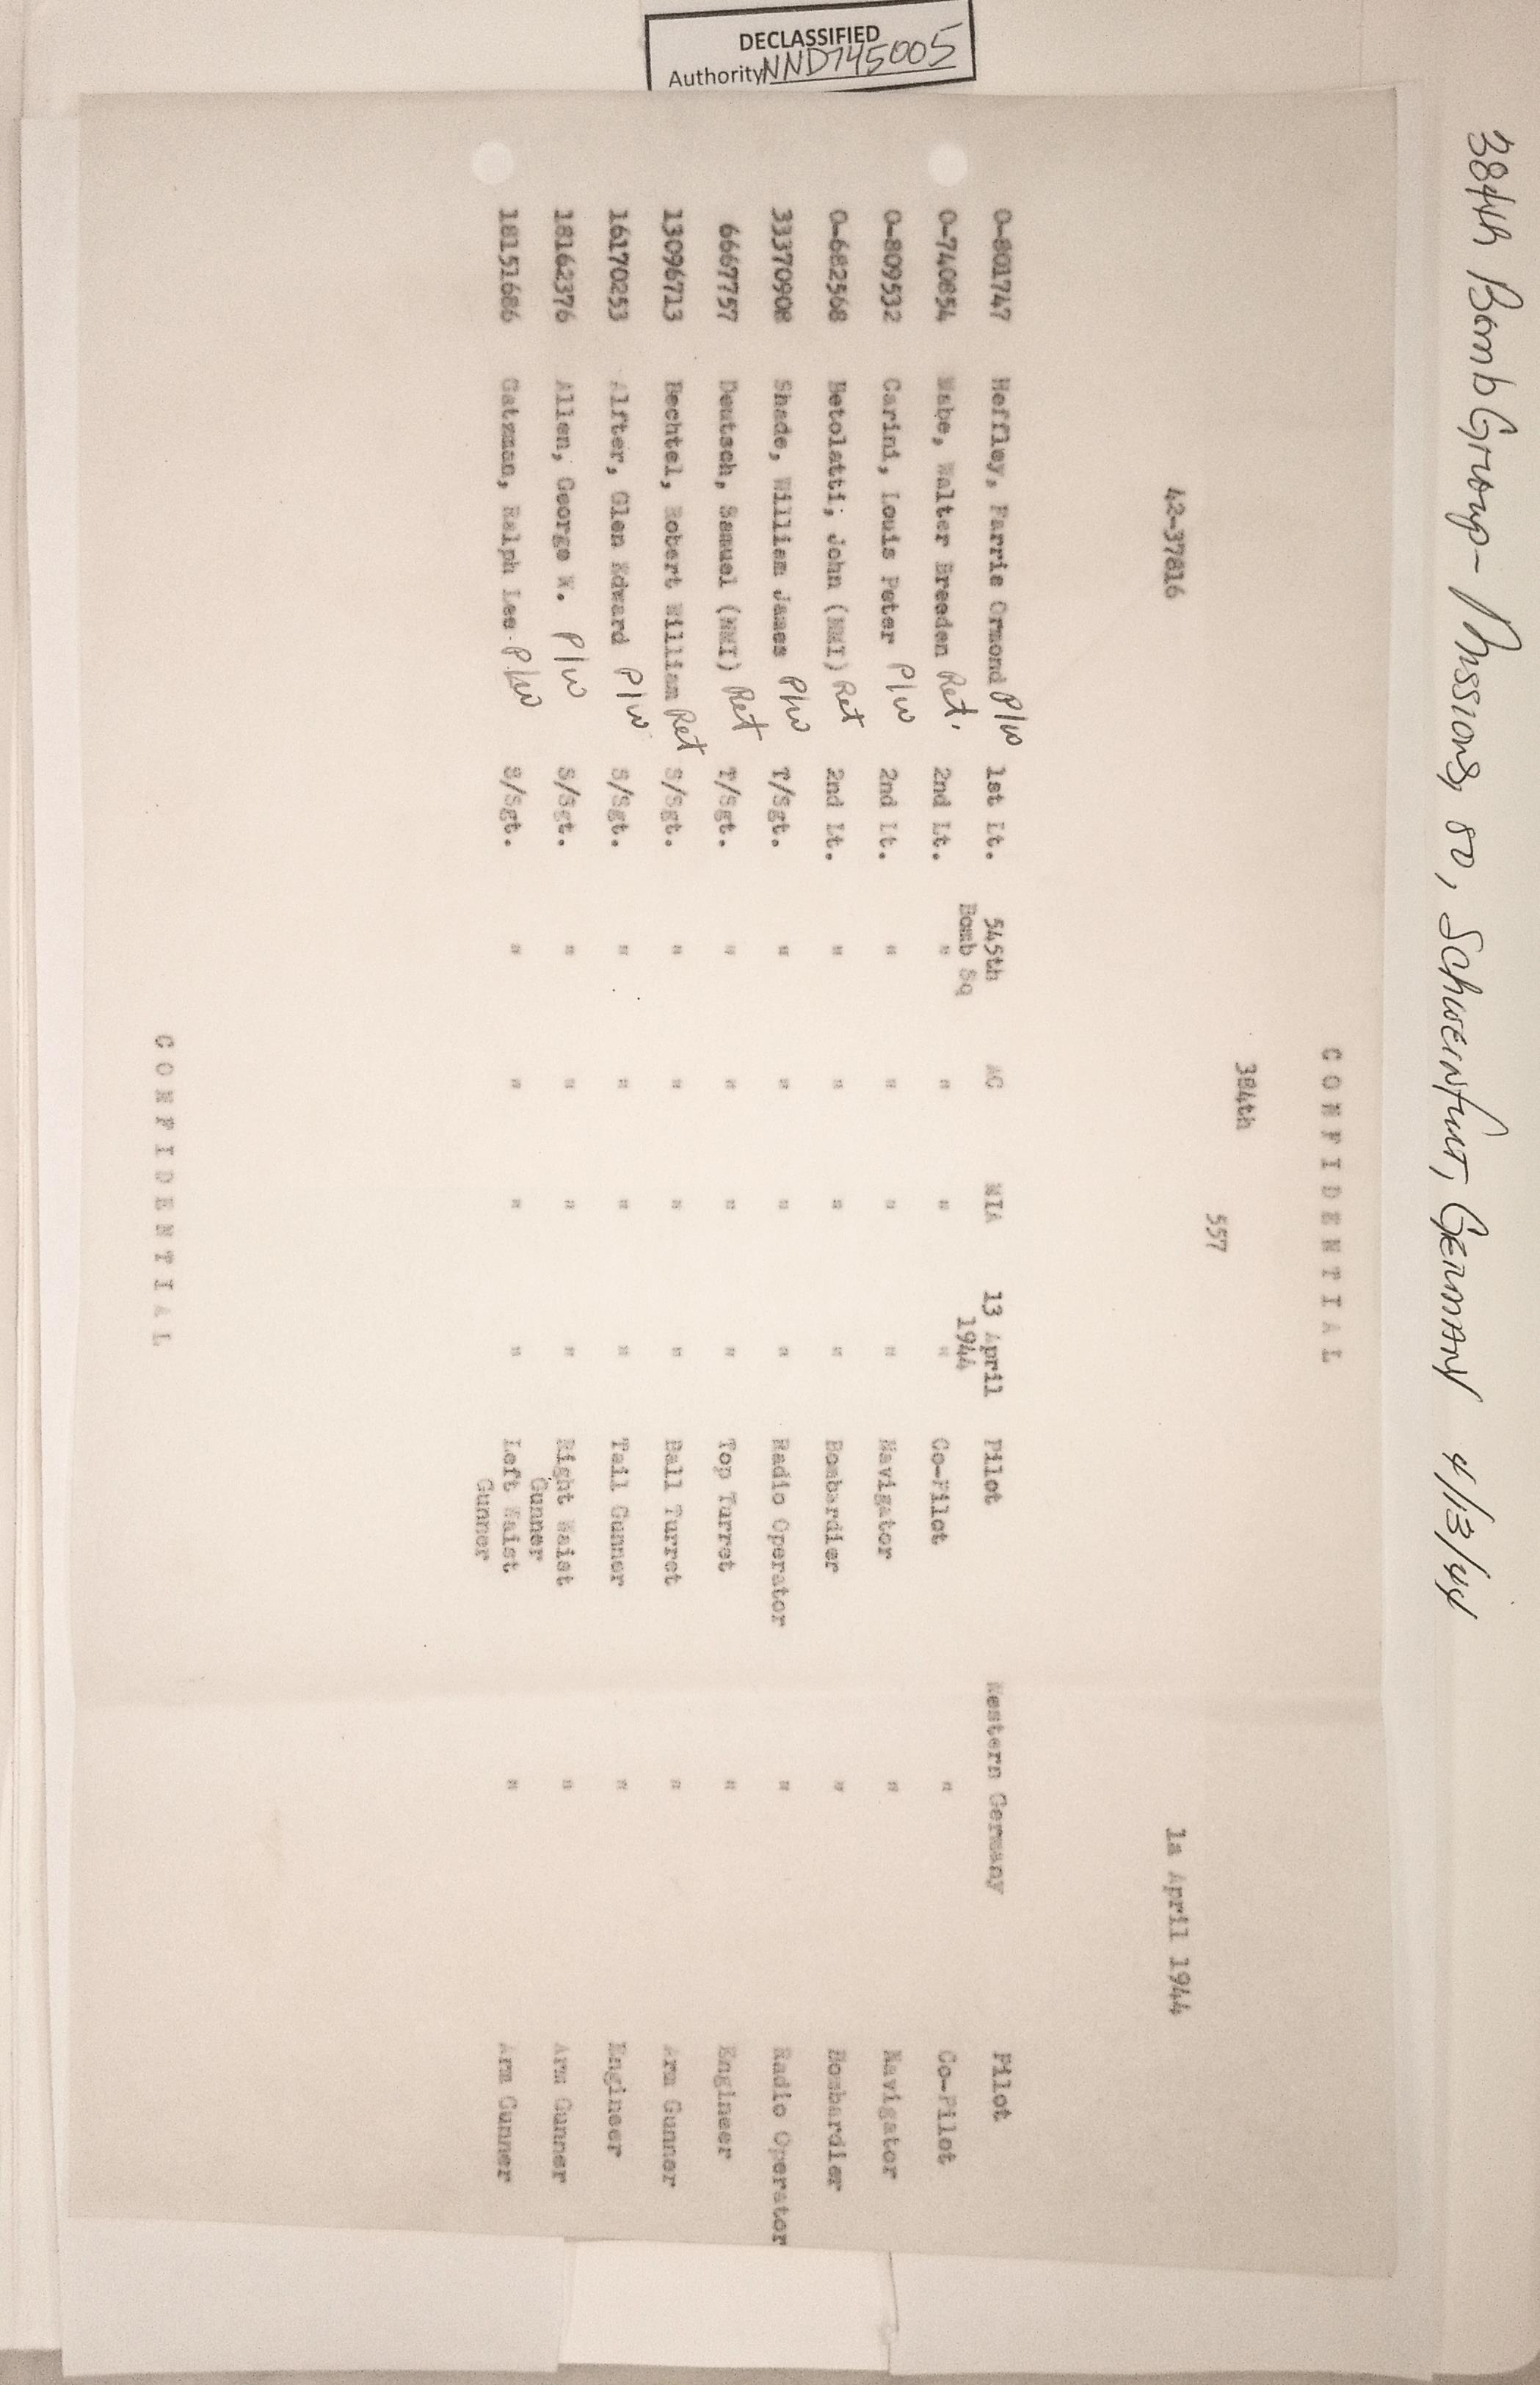 DECLASSIFIED
Authority NND745005
384th Bomb Group - Mission 80, Schweinfurt, Germany 4/13/44
C O N F I D E N T I A L
384th
557
42-37816 1a April 1944
0-801747 Heffley, Farris Ormond P/W 1st Lt. 545th Bomb Sq AC MIA 13 April 1944 Pilot Western Germany Pilot
0-740854 Mabe, Walter Breeden Ret. 2nd Lt. " " " " Co-Pilot " Co-Pilot
0-809532 Carini, Louis Peter P/W 2nd Lt. " " " " Navigator " Navigator
0-682568 Betolatti; John (NMI) Ret 2nd Lt. " " " " Bombardier " Bombardier
33370908 Shade, William James P/W T/Sgt. " " " " Radio Operator " Radio Operator
6667757 Deutsch, Samuel (NMI) Ret T/Sgt. " " " " Top Turret " Engineer
13096713 Bechtel, Robert William Ret S/Sgt. " " " " Ball Turret " Arm Gunner
16170253 Alfter, Glen Edward P/W S/Sgt. " " " " Tail Gunner " Engineer
18162376 Allen, George W. P/W S/Sgt. " " " " Right Waist Gunner " Arm Gunner
18151686 Gatzman, Ralph Lee P/W S/Sgt. " " " " Left Waist Gunner " Arm Gunner
C O N F I D E N T I A L